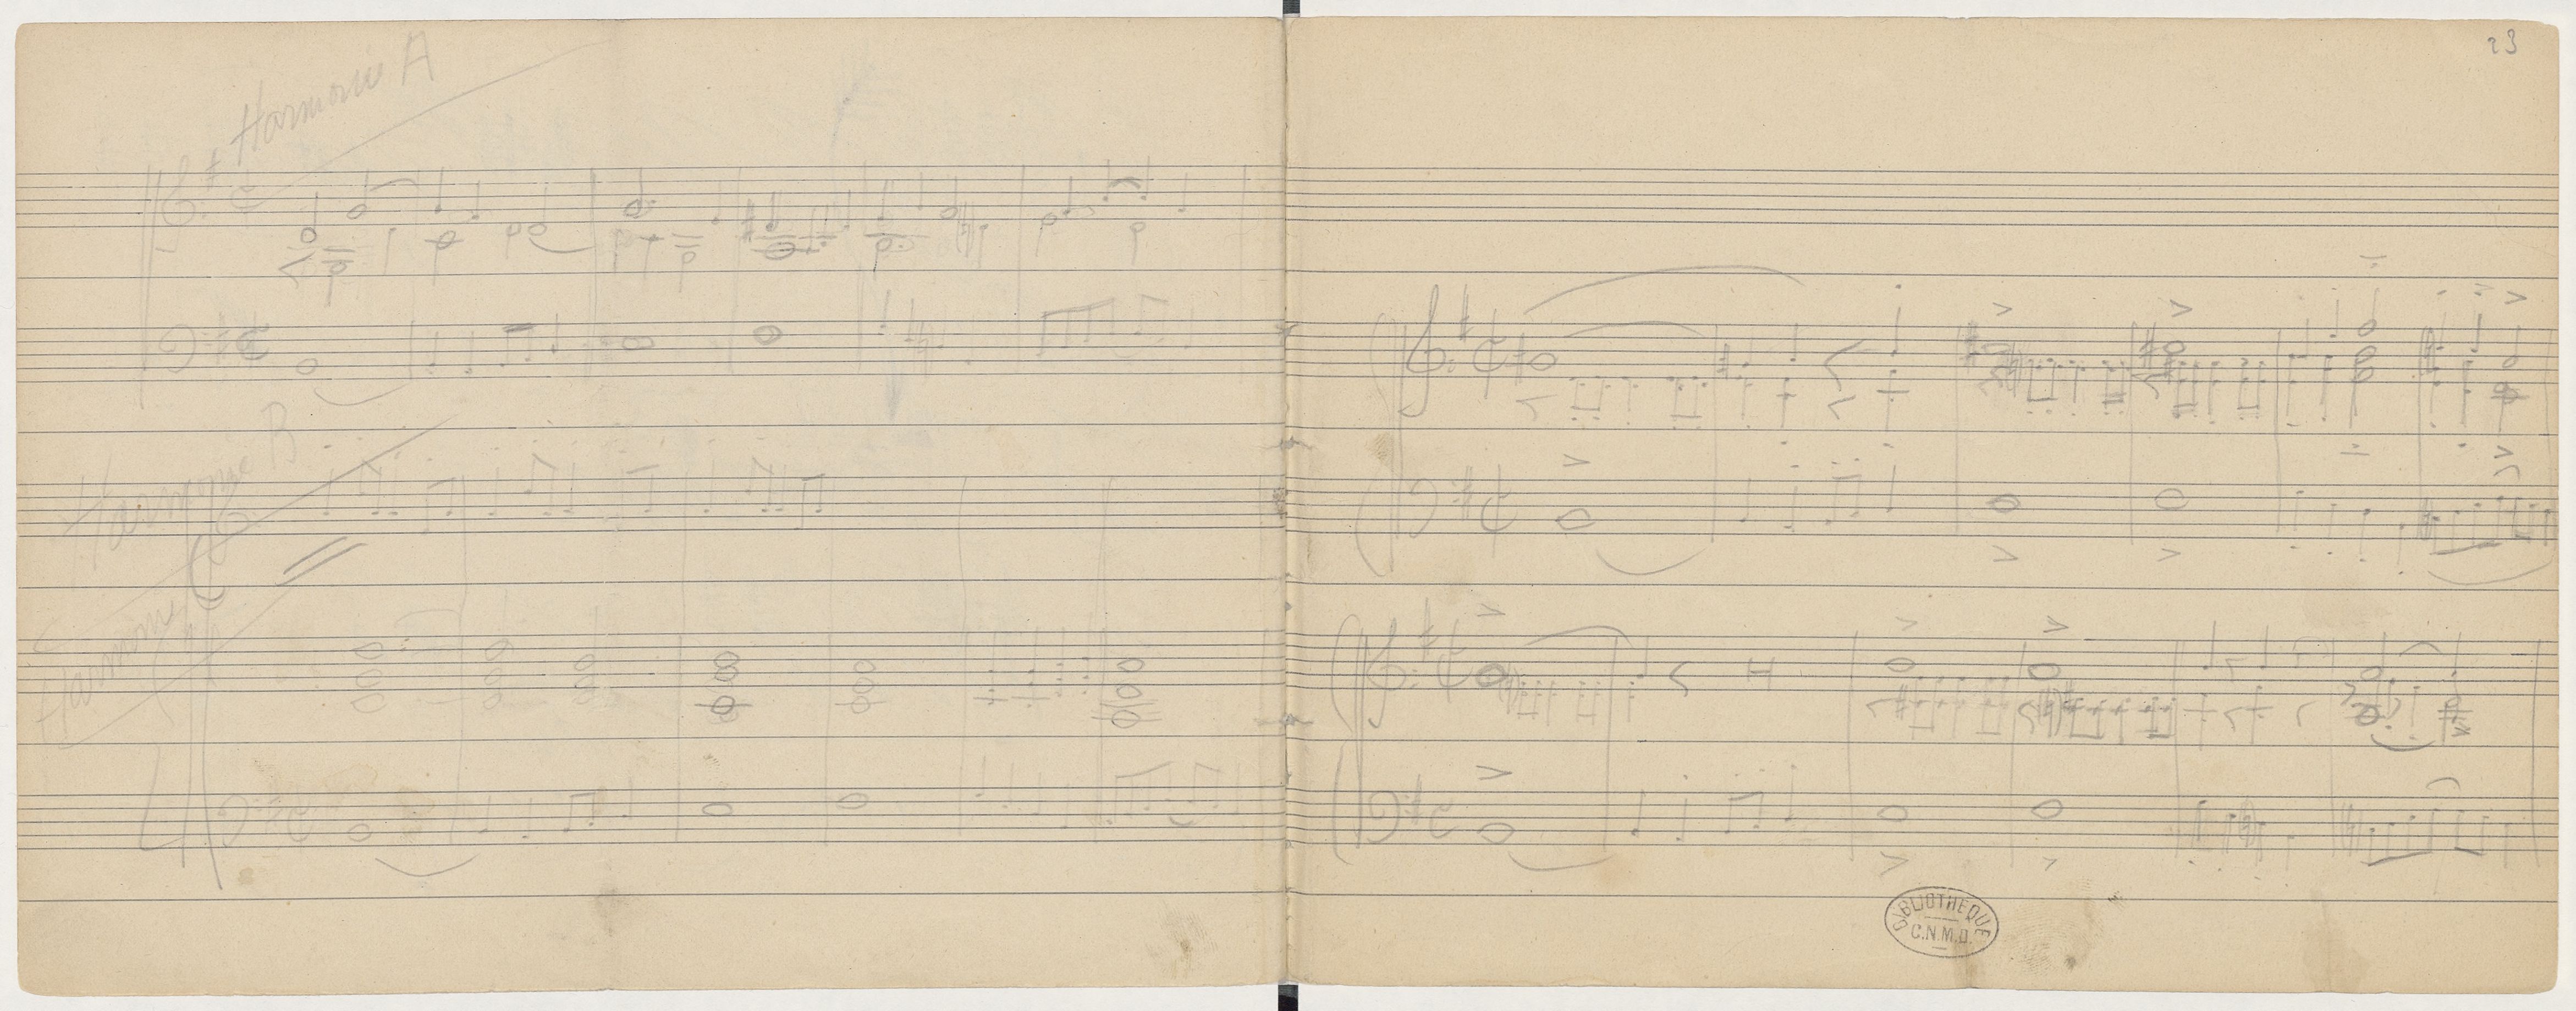 Harmonie A
Harmonye B
Harmonie
23
BIBLIOTHÈQUE
C.N.M.D.